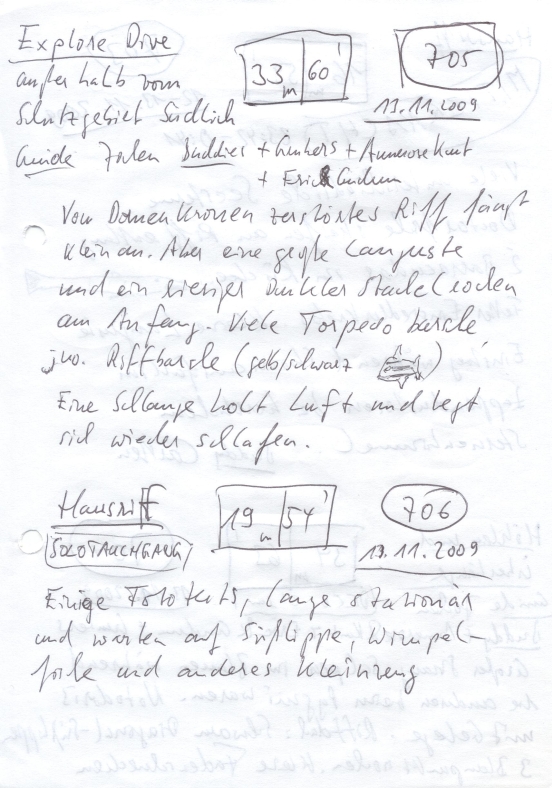 Explore Dive
33 m 60'
705
außerhalb vom
Schutzgebiet Südlich
13.11.2009
Guide Buddies + + Annerose Kurt
+ Erich
Von Dornenkronen zerstörtes Riff fängt
klein an. Aber eine große Languste
und ein riesiger dunkler Stachelrochen
am Anfang. Viele Torpedobarsche
juv. Riffbarsche (gelb/schwarz )
Eine Schlange holt Luft und legt
sich wieder schlafen.
Hausriff
19 m 54'
706
SOLOTAUCHGANG
13.11.2009
Einige Fototests, lange stationär
und warten auf Süßlippe, Wimpel-
fische und anderes Kleinzeug